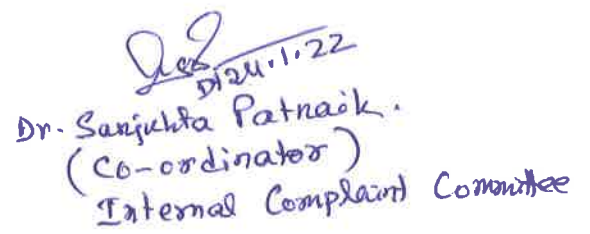 Dt 24.1.22
Dr. Sanjukta Patnaik.
(Co-ordinator)
Internal Complaint Committee